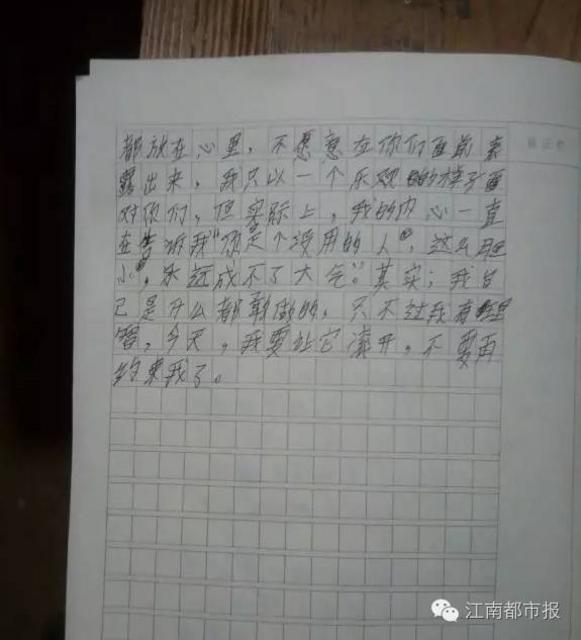 都放在心里，不愿意在你们面前表
露出来，我只以一个乐观的样子面
对你们，但实际上，我的内心一直
在告诉我“你是个没用的人，这么胆
小，永远成不了大气。”其实；我自
己是什么都敢做的，只不过我有
今天，我要让它滚开，不要再
约束我了。
江南都市报